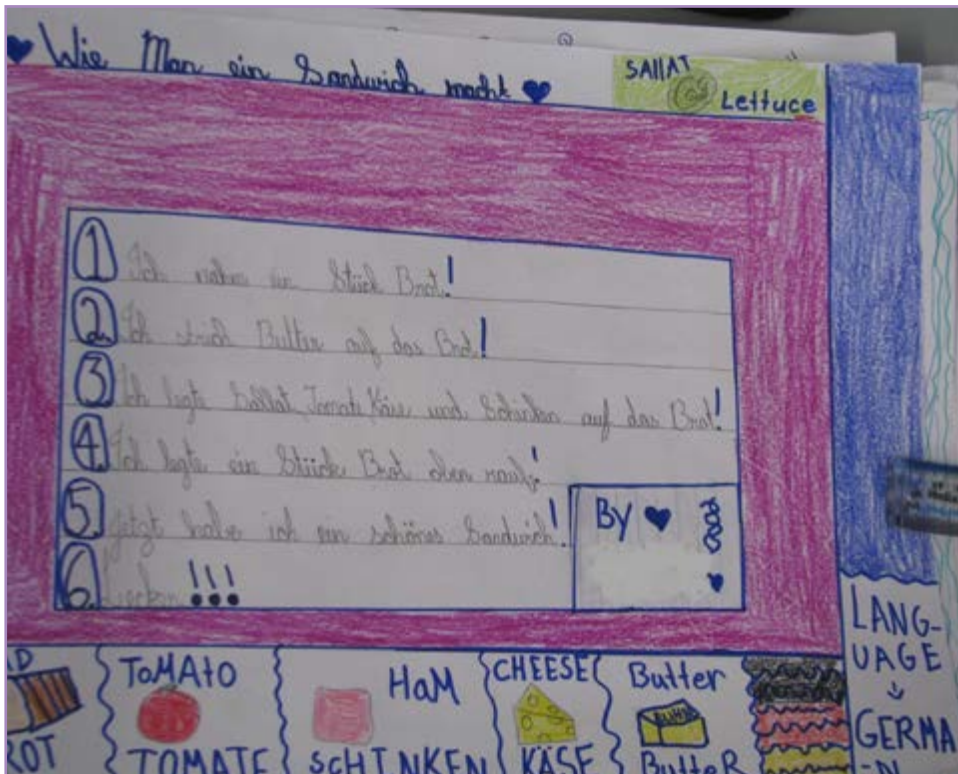 Wie Man ein Sandwich macht
SAllAT
Lettuce
1 Ich nahm ein Stück Brot!
2. Ich strich Butter auf das Brot!
3 Ich legte Sallat, Tomate Käse und Schinken auf das Brot!
4. Ich legte ein Stück Brot oben rauf!
5. Jetzt habe ich ein schönes Sandwich!
6. !!!
BY
LANG-
UAGE
GERMA
-N
ToMAto
TOMATE
HaM
SCHINKEN
CHEESE
KÄSE
Butter
ButteR